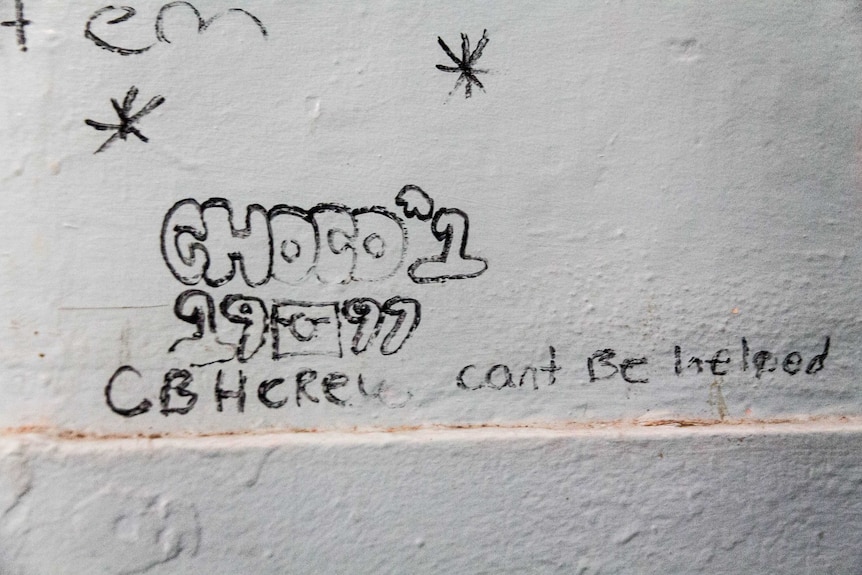 tem
CHOCO '1
19 97
CBHCREW cant Be helped